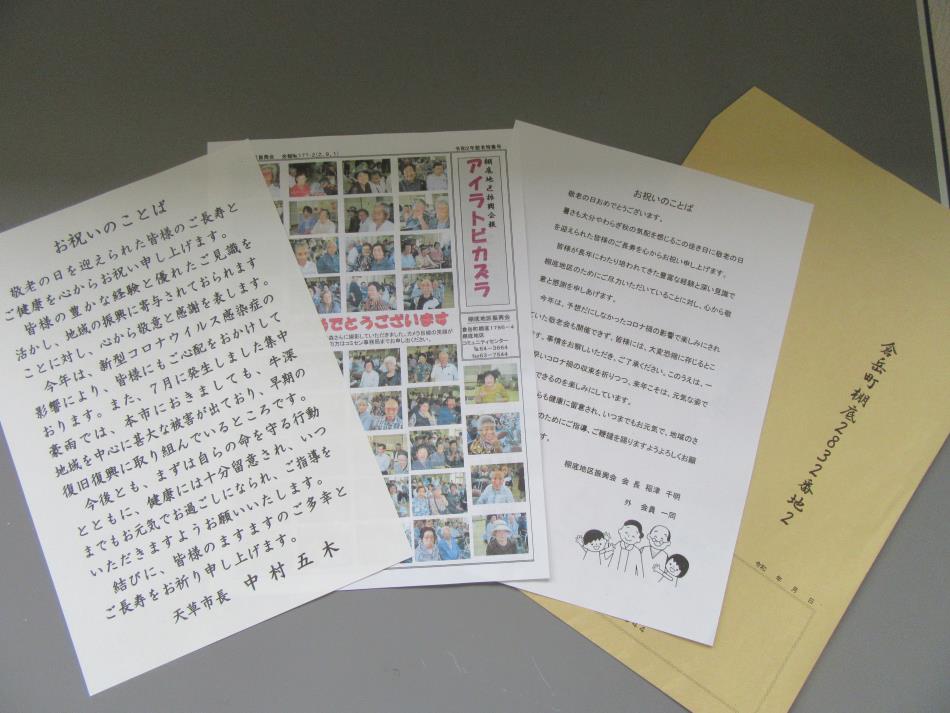 お祝いのことば
敬老の日を迎えられた皆様のご長寿と
ご健康を心からお祝い申し上げます。
皆様の豊かな経験と優れたご見識を
活かし、地域の振興に寄与されておられます
ことに対し、心から敬意と感謝を表します。
今年は、新型コロナウイルス感染症の
影響により、皆様にもご心配をおかけして
おります。また、7月に発生しました集中
豪雨では、本市におきましても、牛深
地域を中心に甚大な被害が出ており、早期の
復旧復興に取り組んでいるところです。
今後とも、まずは自らの命を守る行動
とともに、健康には十分留意され、いつ
までもお元気でお過ごしになられ、ご指導を
いただきますようお願いいたします。
結びに、皆様のますますのご多幸と
ご長寿をお祈り申し上げます。
天草市長 中村 五木
棚底地区振興会報
アイラトビカズラ
でとうございます
棚底地区振興会
倉岳町棚底1786-4
棚底地区
コミュニティセンター
℡64-3664
℻63-7544
お祝いのことば
敬老の日おめでとうございます。
暑さも大分やわらぎ秋の気配を感じるこの佳き日に敬老の日
を迎えられた皆様のご長寿を心からお祝い申し上げます。
皆様が長年にわたり培われてきた豊富な経験と深い見識で
棚底地区のためにご尽力いただいていることに対し、心から敬
意と感謝を申しあげます。
今年は、予想だにしなかったコロナ禍の影響で楽しみにされ
ていた敬老会も開催できず、皆様には、大変恐縮に存じるとこ
です。事情をお察しいただき、ご了承ください。このうえは、一
早いコロナ禍の収束を祈りつつ、来年こそは、元気な姿で
できるのを楽しみにしています。
らも健康に留意され、いつまでもお元気で、地域のさ
のためにご指導、ご鞭撻を賜りますようよろしくお願
す。
棚底地区振興会 会長 稲津 千明
外 会員一同
倉岳町棚底2832番地2
令和 年 月 日